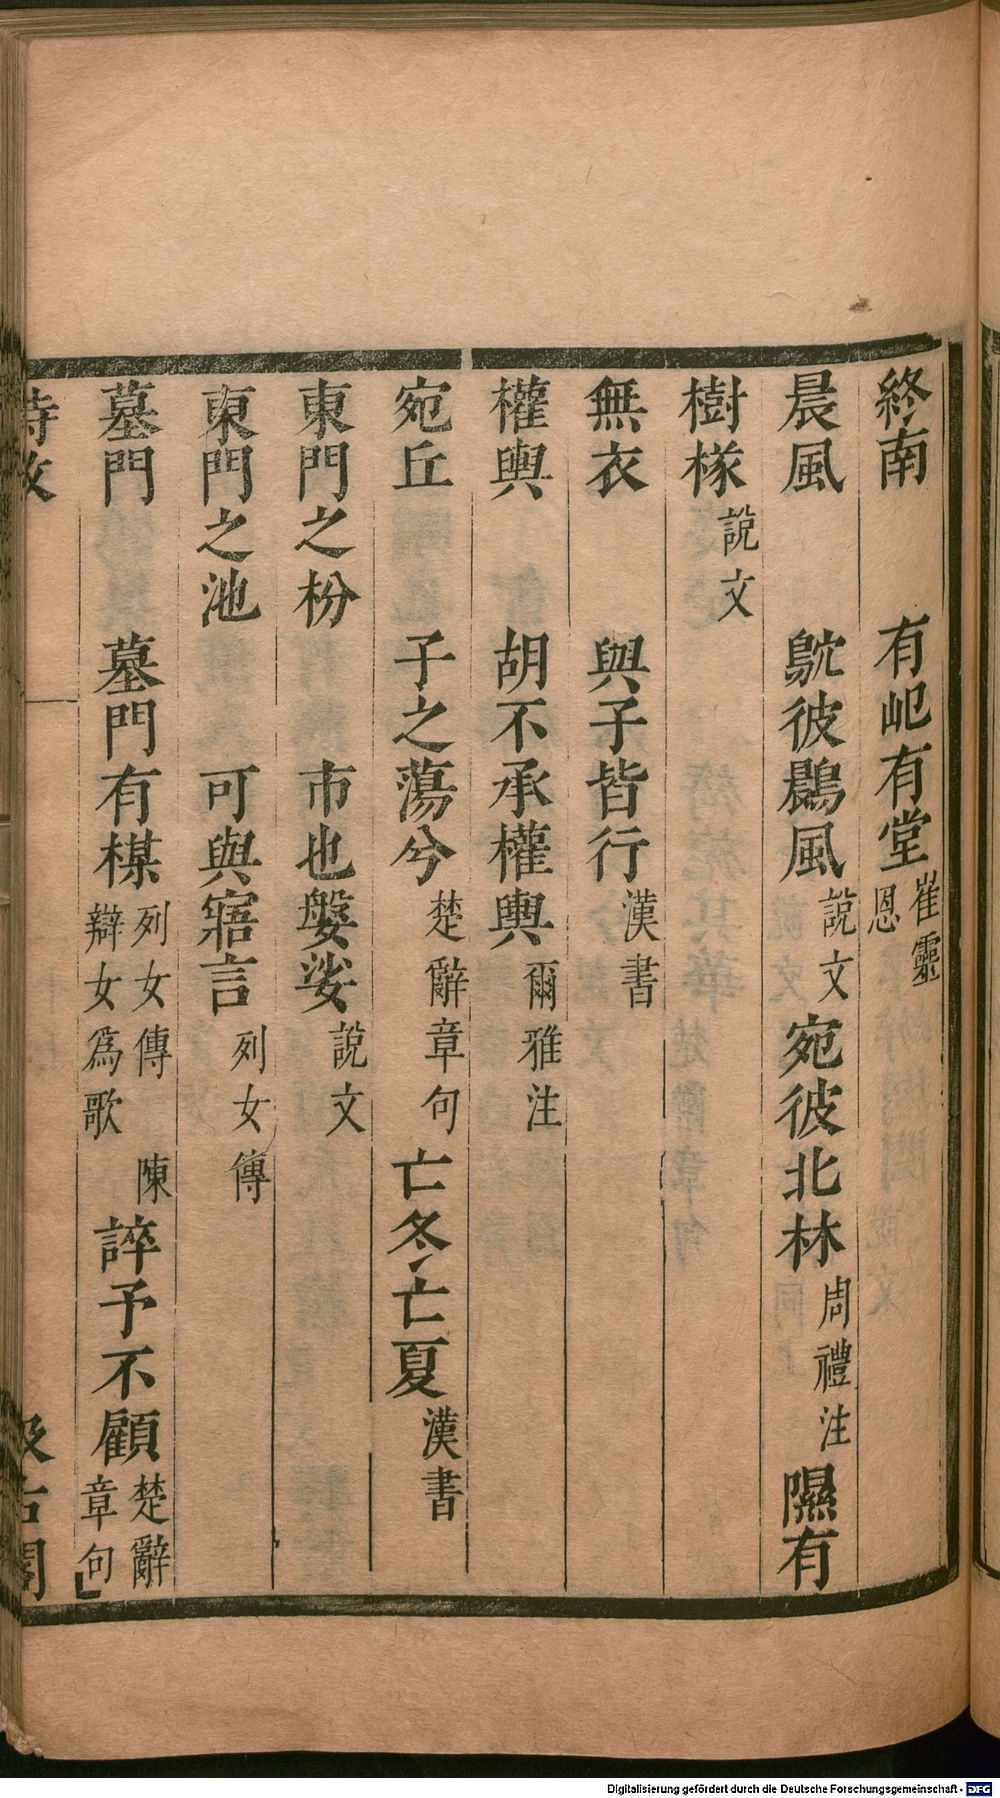 終南　有屺有堂崔靈恩
晨風　鴥彼鷐風說文宛彼北林周禮注隰有
樹檖說文
無衣　與子皆行漢書
權輿　胡不承權輿爾雅注
宛丘　子之蕩兮楚辭章句亡冬亡夏漢書
東門之枌　市也媻娑說文
東門之池　可與寤言列女傳
墓門　墓門有楳列女傳陳辯女爲歌誶予不顧楚辭章句
詩攷
汲古閣
Digitalisierung gefördert durch die Deutsche Forschungsgemeinschaft - DFG